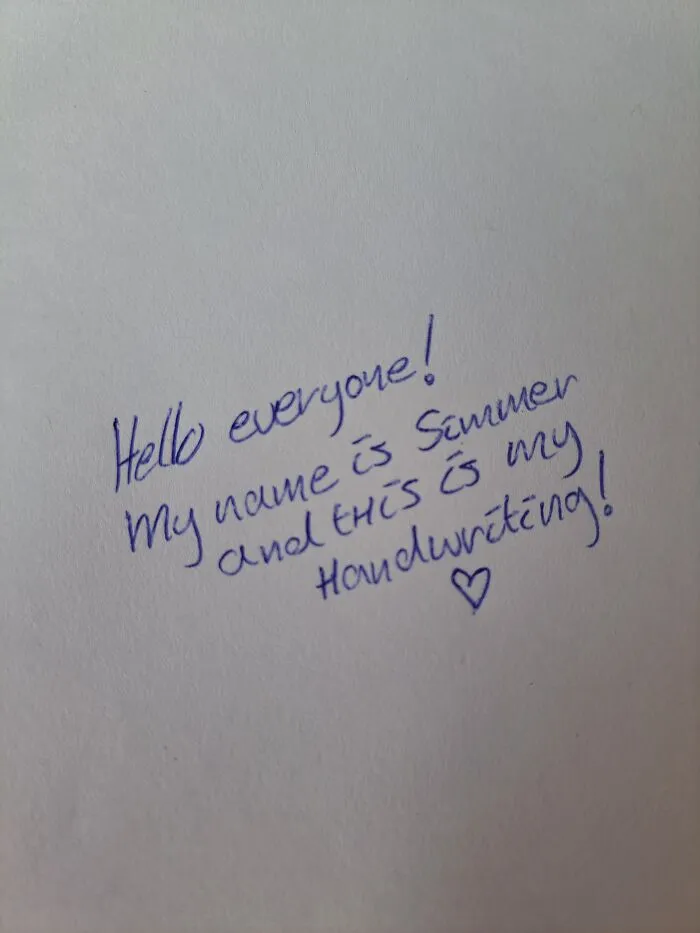 Hello everyone!
My name is Simmer
and tHis is my
Handwriting!
♡